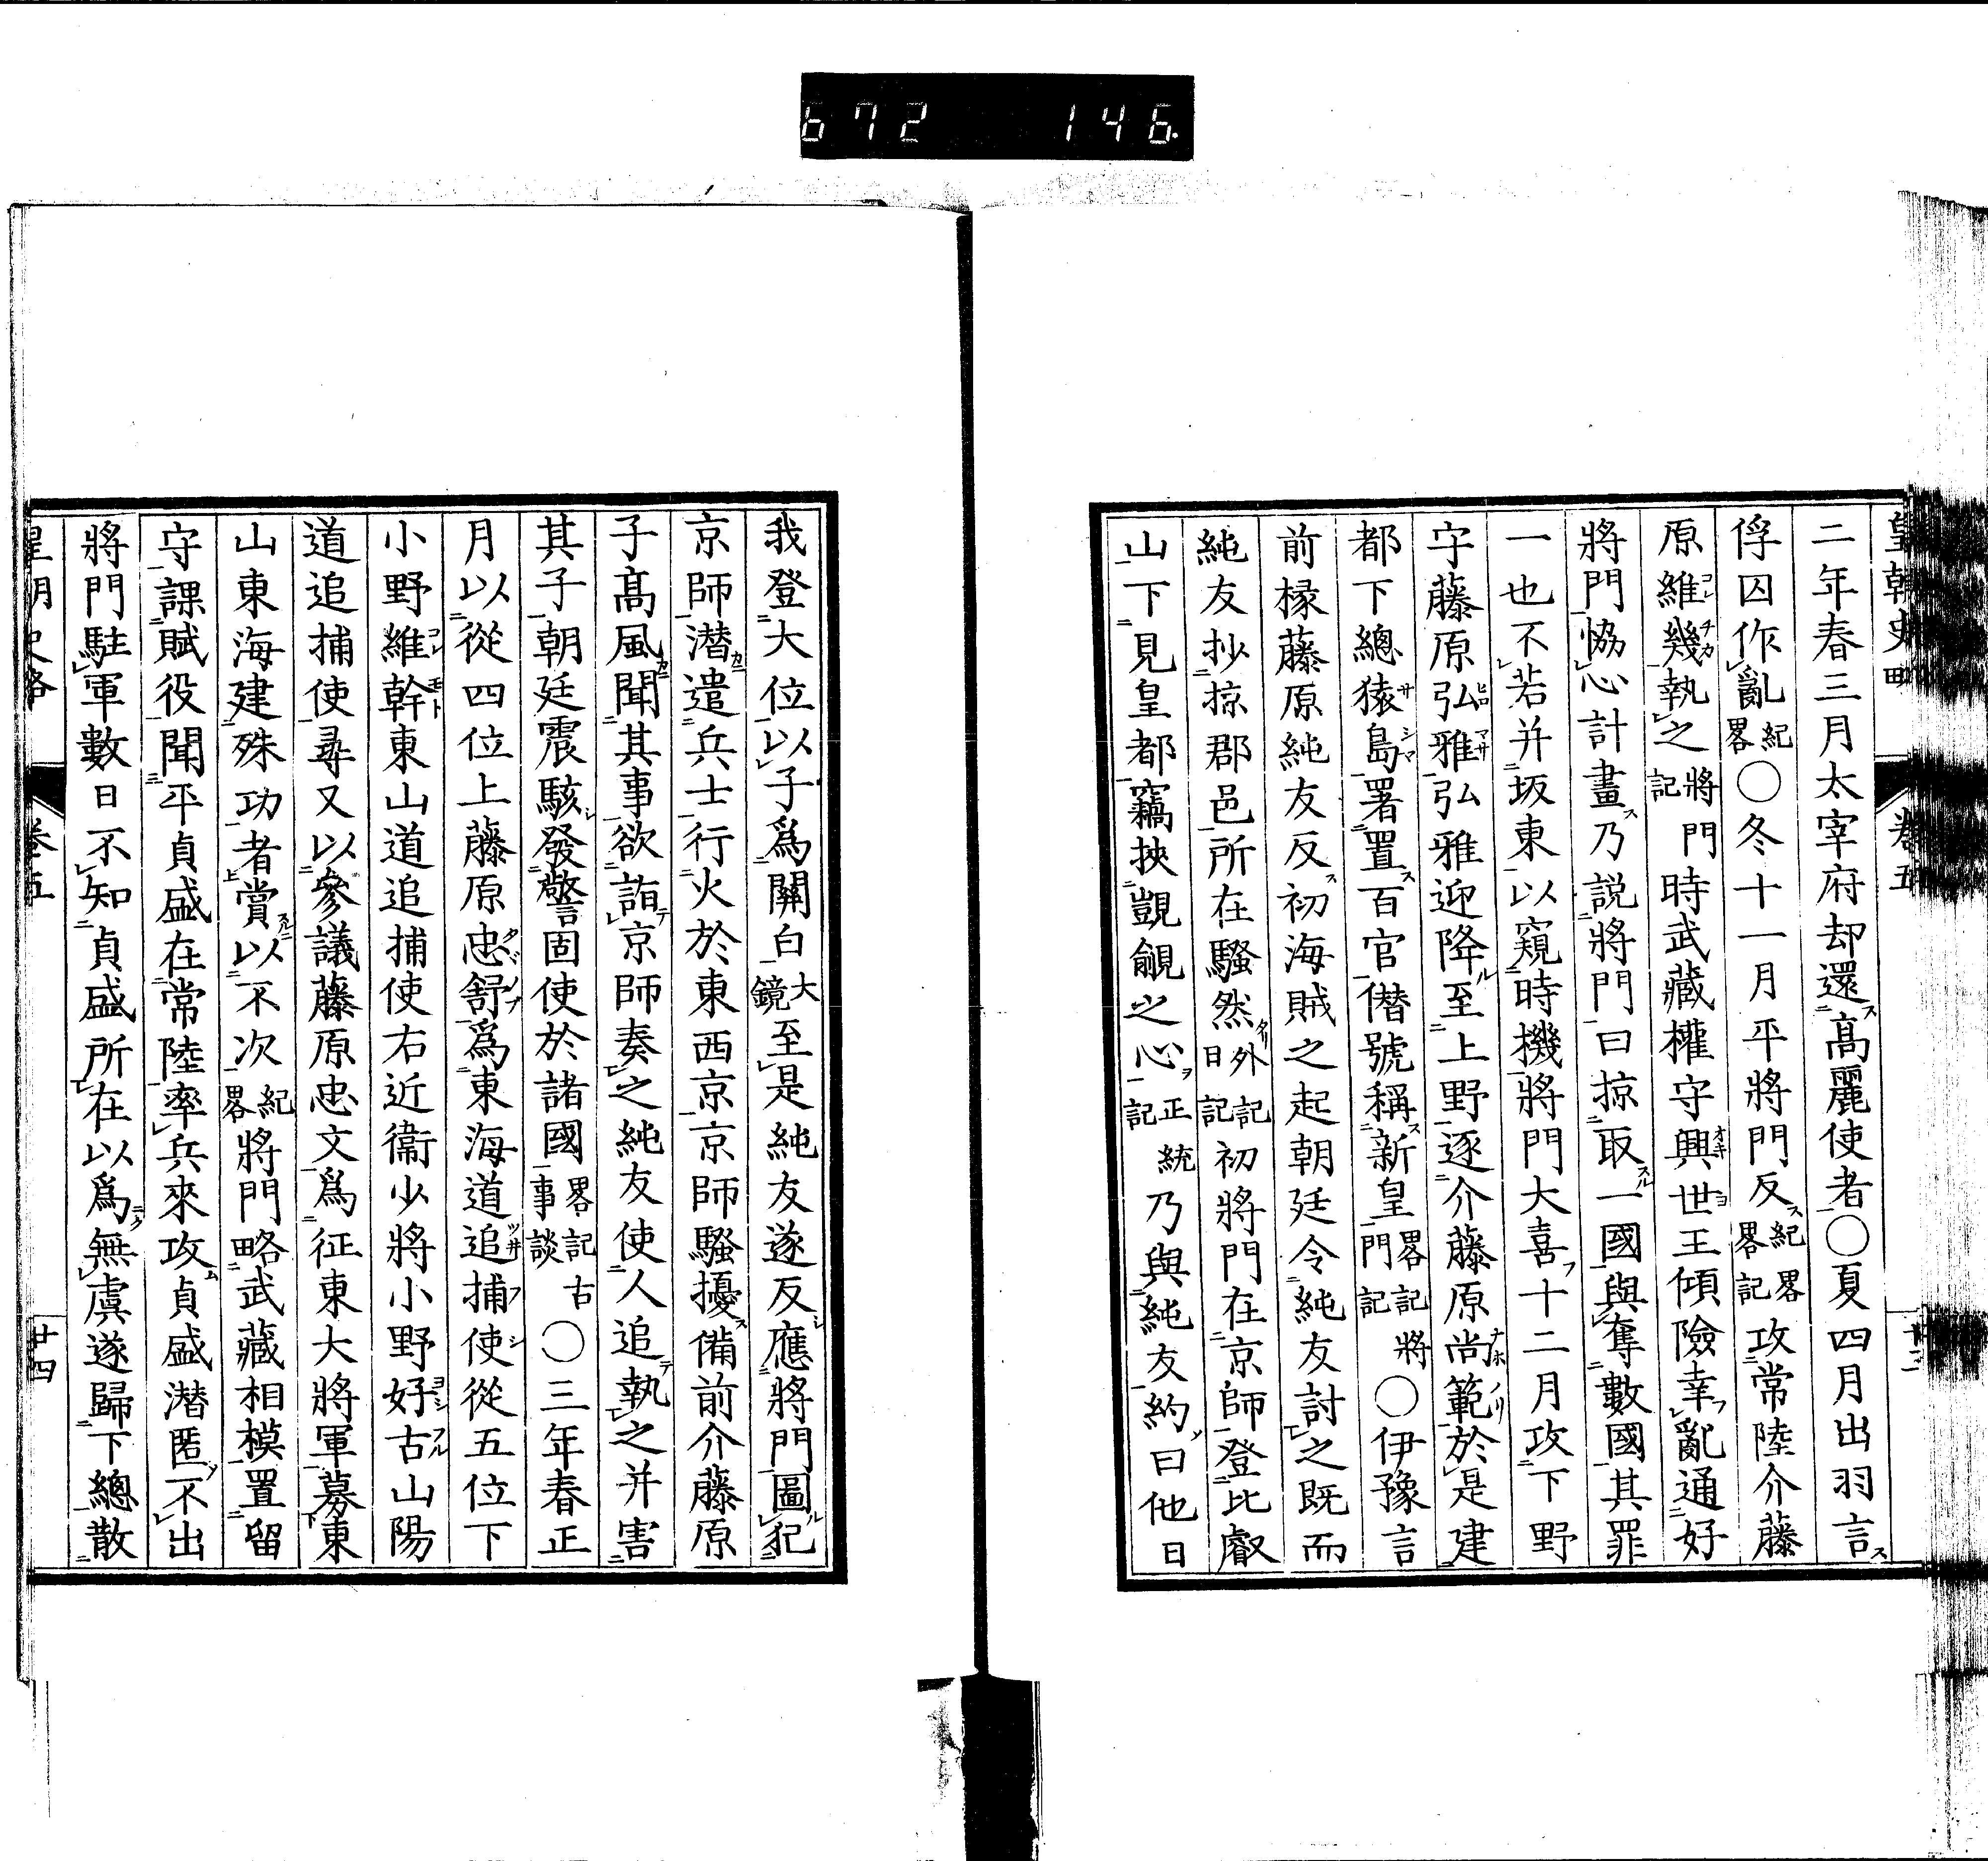 672 146
皇朝史略 卷五
二年春三月太宰府却還高麗使者○夏四月出羽言
俘囚作亂紀畧○冬十一月平將門反紀畧畧記攻常陸介藤
原維幾執之將門記時武藏權守興世王傾險幸亂通好
將門恊心計畫乃説將門曰掠取一國與奪數國其罪
一也不若并坂東以窺時機將門大喜十二月攻下野
守藤原弘雅弘雅迎降至上野逐介藤原尚範於是建
都下總猿島署置百官僭號稱新皇畧記將門記○伊豫言
前掾藤原純友反初海賊之起朝廷令純友討之既而
純友抄掠郡邑所在騷然外記日記初將門在京師登比叡
山下見皇都竊挾覬覦之心正統記乃與純友約曰他日
我登大位以子爲關白大鏡至是純友遂反應將門圖犯
京師潛遣兵士行火於東西京京師騷擾備前介藤原
子髙風聞其事欲詣京師奏之純友使人追執之并害
其子朝廷震駭發警固使於諸國畧記古事談○三年春正
月以從四位上藤原忠舒爲東海道追捕使從五位下
小野維幹東山道追捕使右近衞少將小野好古山陽
道追捕使尋又以參議藤原忠文爲征東大將軍募東
山東海建殊功者賞以不次紀畧將門略武藏相模置留
守課賦役聞平貞盛在常陸率兵來攻貞盛潛匿不出
將門駐軍數日不知貞盛所在以爲無虞遂歸下總散
皇朝史略 卷五 廿四